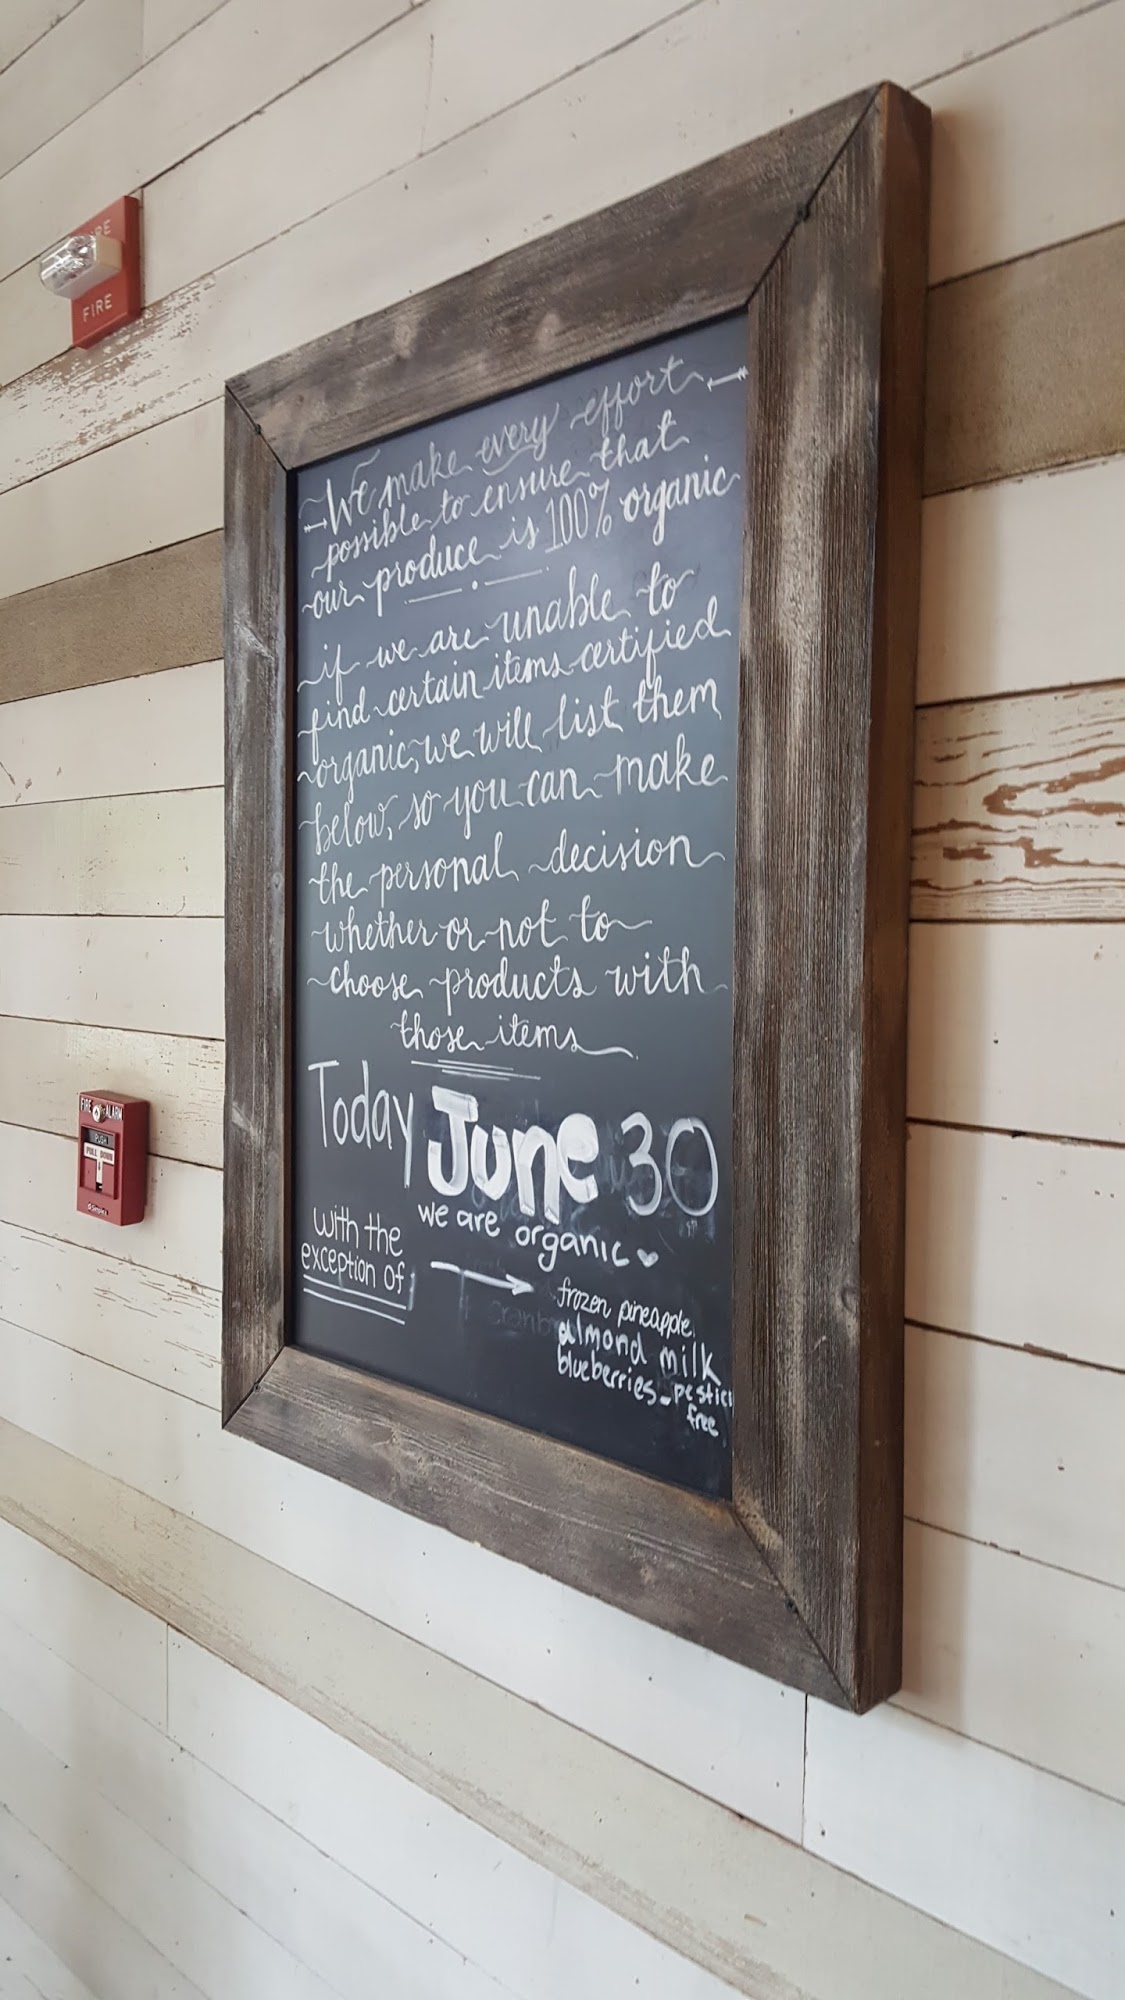 FIRE
FIRE
We make every effort
possible to ensure that
our produce is 100% organic
if we are unable to
find certain items certified
organic, we will list them
below, so you can make
the personal decision
whether or not to
choose products with
those items
Today June 30
we are organic
with the
exception of
frozen pineapple
almond milk
blueberries - pestici
free
FIRE ALARM
PUSH
PULL DOWN
Simplex